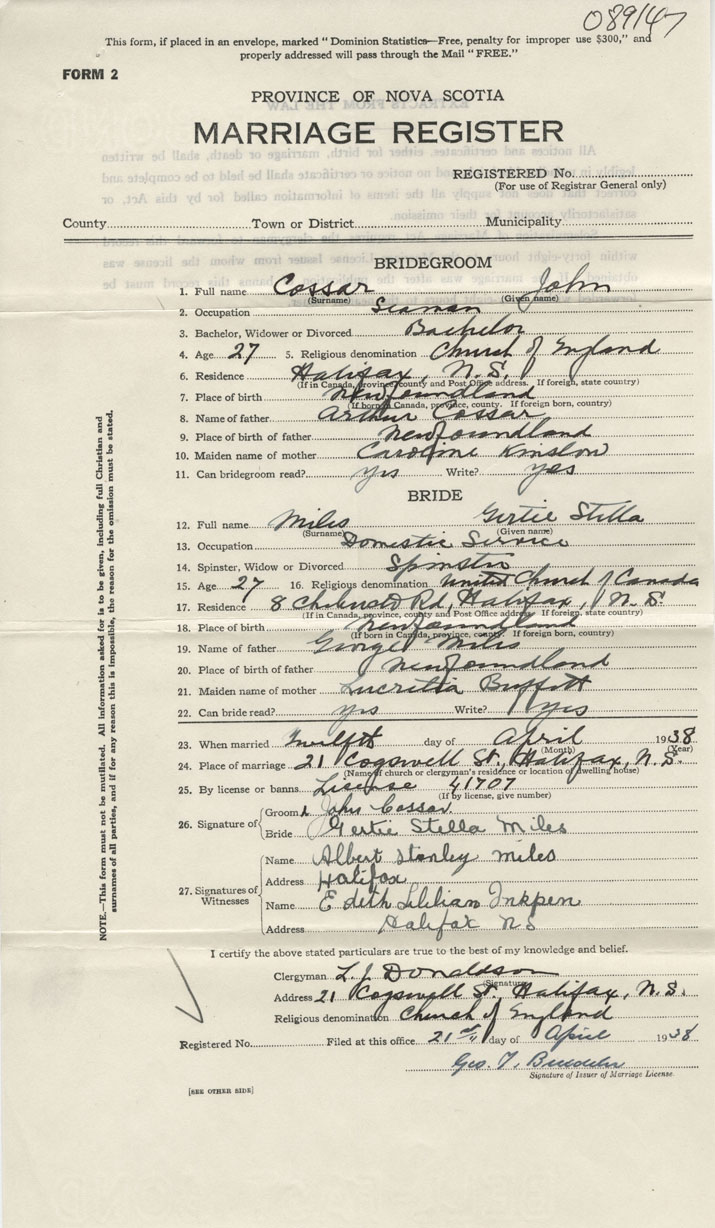 08914
This form, if placed in an envelope, marked "Dominion Statistics—Free, penalty for improper use $300," and
properly addressed will pass through the Mail "FREE."
FORM 2
PROVINCE OF NOVA SCOTIA
MARRIAGE REGISTER
REGISTERED No.
(For use of Registrar General only)
County Town or District Municipality
BRIDEGROOM
1. Full name Cossar John
(Surname) (Given name)
2. Occupation Seaman
3. Bachelor, Widower or Divorced Bachelor
4. Age 27 5. Religious denomination Church of England
6. Residence Halifax, N.S.
(If in Canada, province, county and Post Office address. If foreign, state country)
7. Place of birth Newfoundland
(If born in Canada, province, county. If foreign born, country)
8. Name of father Arthur Cossar
9. Place of birth of father Newfoundland
10. Maiden name of mother Caroline Kinslow
11. Can bridegroom read? yes Write? yes
BRIDE
12. Full name Miles Gertie Stella
(Surname) (Given name)
13. Occupation Domestic Service
14. Spinster, Widow or Divorced Spinster
15. Age 27 16. Religious denomination United Church of Canada
17. Residence 8 Chebucto Rd, Halifax, N.S.
(If in Canada, province, county and Post Office address If foreign, state country)
18. Place of birth Newfoundland
(If born in Canada, province, county. If foreign born, country)
19. Name of father George Miles
20. Place of birth of father Newfoundland
21. Maiden name of mother Lucretia Buffett
22. Can bride read? yes Write? yes
23. When married Twelfth day of April 1938
(Month) (Year)
24. Place of marriage 21 Cogswell St., Halifax, N.S.
(Name if church or clergyman's residence or location of dwelling house)
25. By license or banns License 41707
(If by license, give number)
26. Signature of Groom John Cossar
Bride Gertie Stella Miles
27. Signatures of Witnesses
Name Albert Stanley Miles
Address Halifax
Name Edith Lilian Inkpen
Address Halifax NS
I certify the above stated particulars are true to the best of my knowledge and belief.
Clergyman L. J. Donaldson
(Signature)
Address 21 Cogswell St, Halifax, N.S.
Religious denomination Church of England
Registered No. Filed at this office 21st day of April 1938
Geo. T.
Signature of Issuer of Marriage License.
[SEE OTHER SIDE]
NOTE.—This form must not be mutilated. All information asked for is to be given, including full Christian and
surnames of all parties, and if for any reason this is impossible, the reason for the omission must be stated.